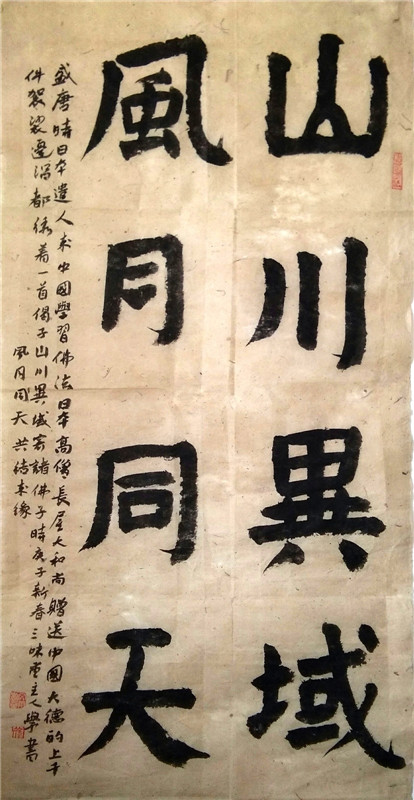 山川異域
風月同天
盛唐時日本遣人來中國學習佛法日本高僧長屋大和尚贈送中國大德的上千
件袈裟邊沿都綉着一首偈子山川異域寄諸佛子時庚子新春三味堂主人學書
風月同天共結來緣